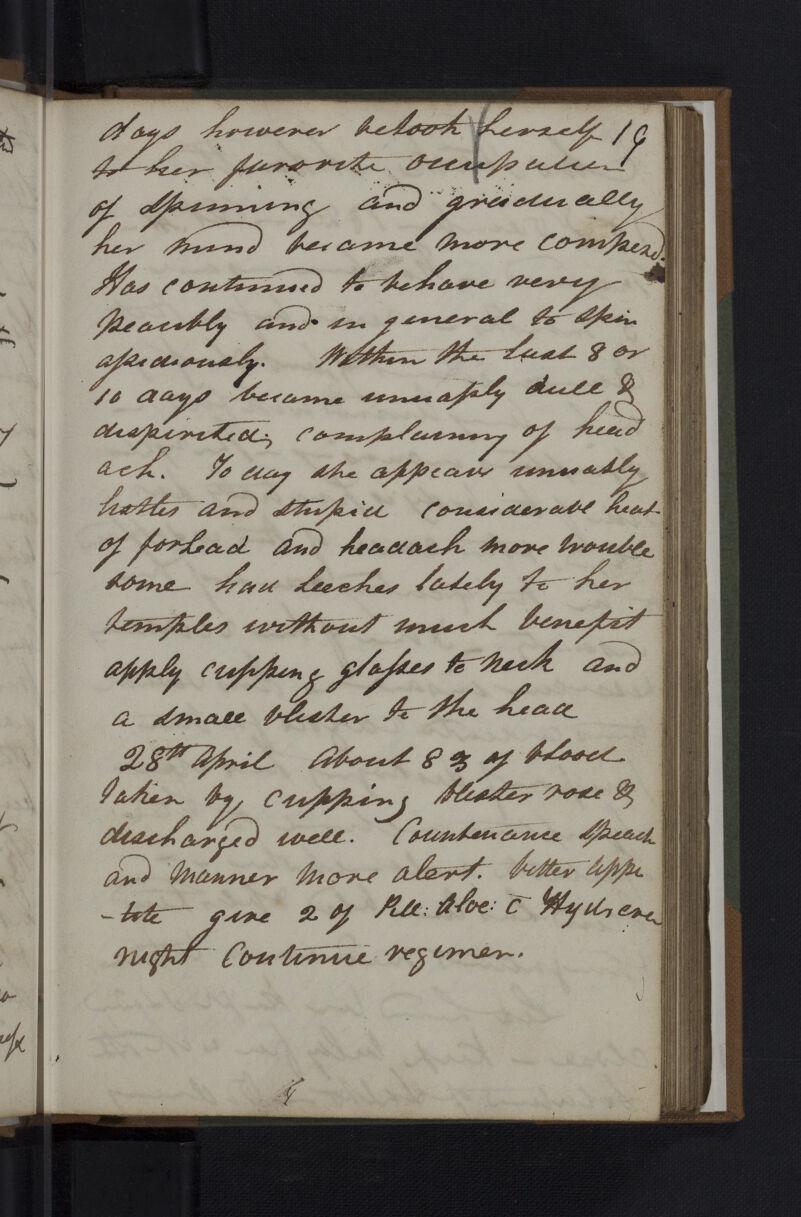 days however betook herself 19
to her favorite occupation
of spinning and gradually
her mind became more composed.
Has continued to behave very
peacibly and in general to spin
assiduously. Within the last 8 or
10 days became unusaly dull &
dispirited, complaining of head
ach. To day she appears unusaly
listles and stupid considerable heat
of forhead and headach more trouble
some had leeches lately to her
temples without much benefit
apply cupping glasses to neck and
a small blister to the head
28th April About 8 ℥ of blood
taken by cupping blister rose &
discharged well. Countenance speach
and manner more alert. better appe
-tite give 2 of Pill: Aloe: c̄ Hydr every
night Continue regimen.